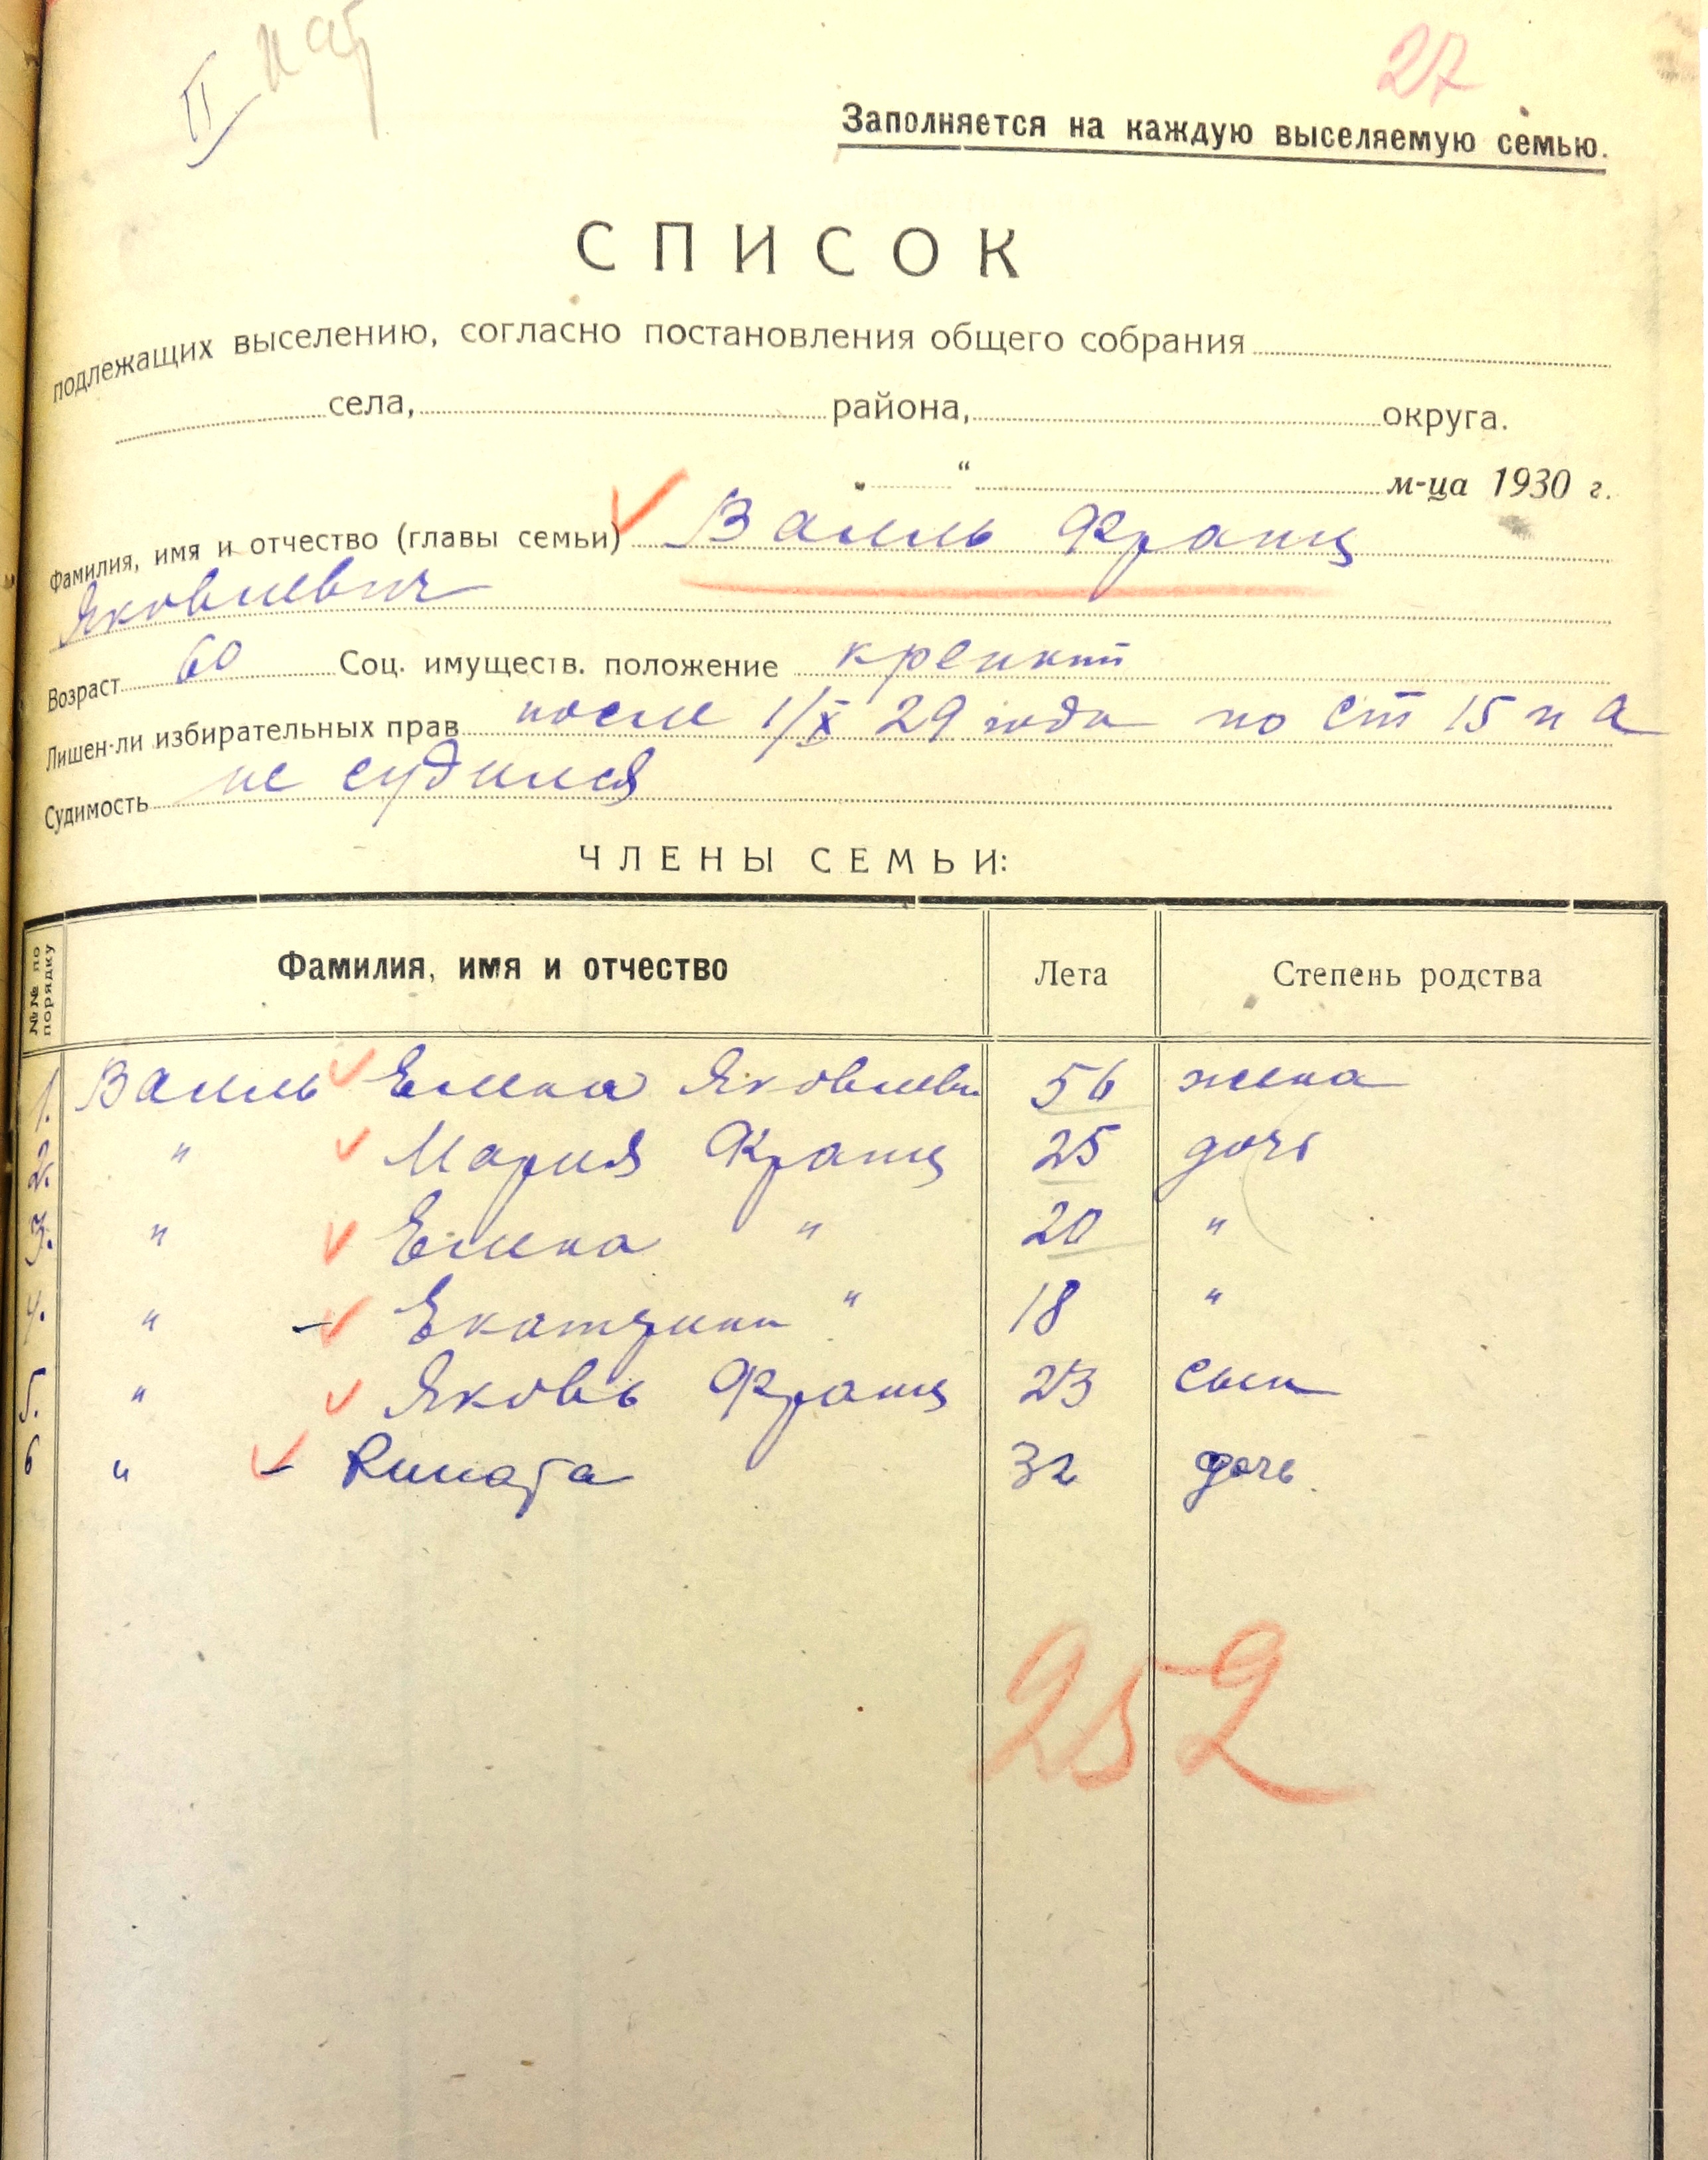 II кат
27
Заполняется на каждую выселяемую семью.
СПИСОК
подлежащих выселению, согласно постановления общего собрания
села, района, округа.
" м-ца 1930 г.
Фамилия, имя и отчество (главы семьи) Валль Франц
Яковлевич
Возраст 60 Соц. имуществ. положение крепкий
Лишен-ли избирательных прав после 1/X 29 года по ст 15 п а
Судимость не судился
ЧЛЕНЫ СЕМЬИ:
№№ по порядку Фамилия, имя и отчество Лета Степень родства
1. Валль Елена Яковлевн 56 жена
2. " Мария Франц 25 дочь
3. " Елена " 20 "
4. " – Екатерина " 18 "
5. " Яковь Франц 23 сын
6 " – 32 дочь
252